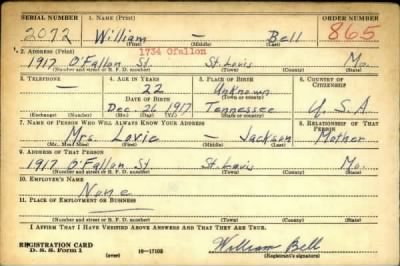 SERIAL NUMBER 1. NAME (Print) ORDER NUMBER
2072 William — Bell 865
(First) (Middle) (Last)
1734 Ofallon
2. ADDRESS (Print)
1917 O'Fallon St. St. Louis Mo.
(Number and street or R. F. D. number) (Town) (County) (State)
3. TELEPHONE 4. AGE IN YEARS 5. PLACE OF BIRTH 6. COUNTRY OF CITIZENSHIP
— 22 Unknown
DATE OF BIRTH (Town or county)
Dec. 26 1917 Tennessee U.S.A
(Exchange) (Number) (Mo.) (Day) (Yr.) (State or country)
7. NAME OF PERSON WHO WILL ALWAYS KNOW YOUR ADDRESS 8. RELATIONSHIP OF THAT PERSON
Mrs. Lovie — Jackson Mother
(Mr., Mrs., Miss) (First) (Middle) (Last)
9. ADDRESS OF THAT PERSON
1917 O'Fallon St. St. Louis Mo.
(Number and street or R. F. D. number) (Town) (County) (State)
10. EMPLOYER'S NAME
None
11. PLACE OF EMPLOYMENT OR BUSINESS
—
(Number and street or R. F. D. number) (Town) (County) (State)
I AFFIRM THAT I HAVE VERIFIED ABOVE ANSWERS AND THAT THEY ARE TRUE.
REGISTRATION CARD
D. S. S. Form 1 16—17105 William Bell
(over) (Registrant's signature)